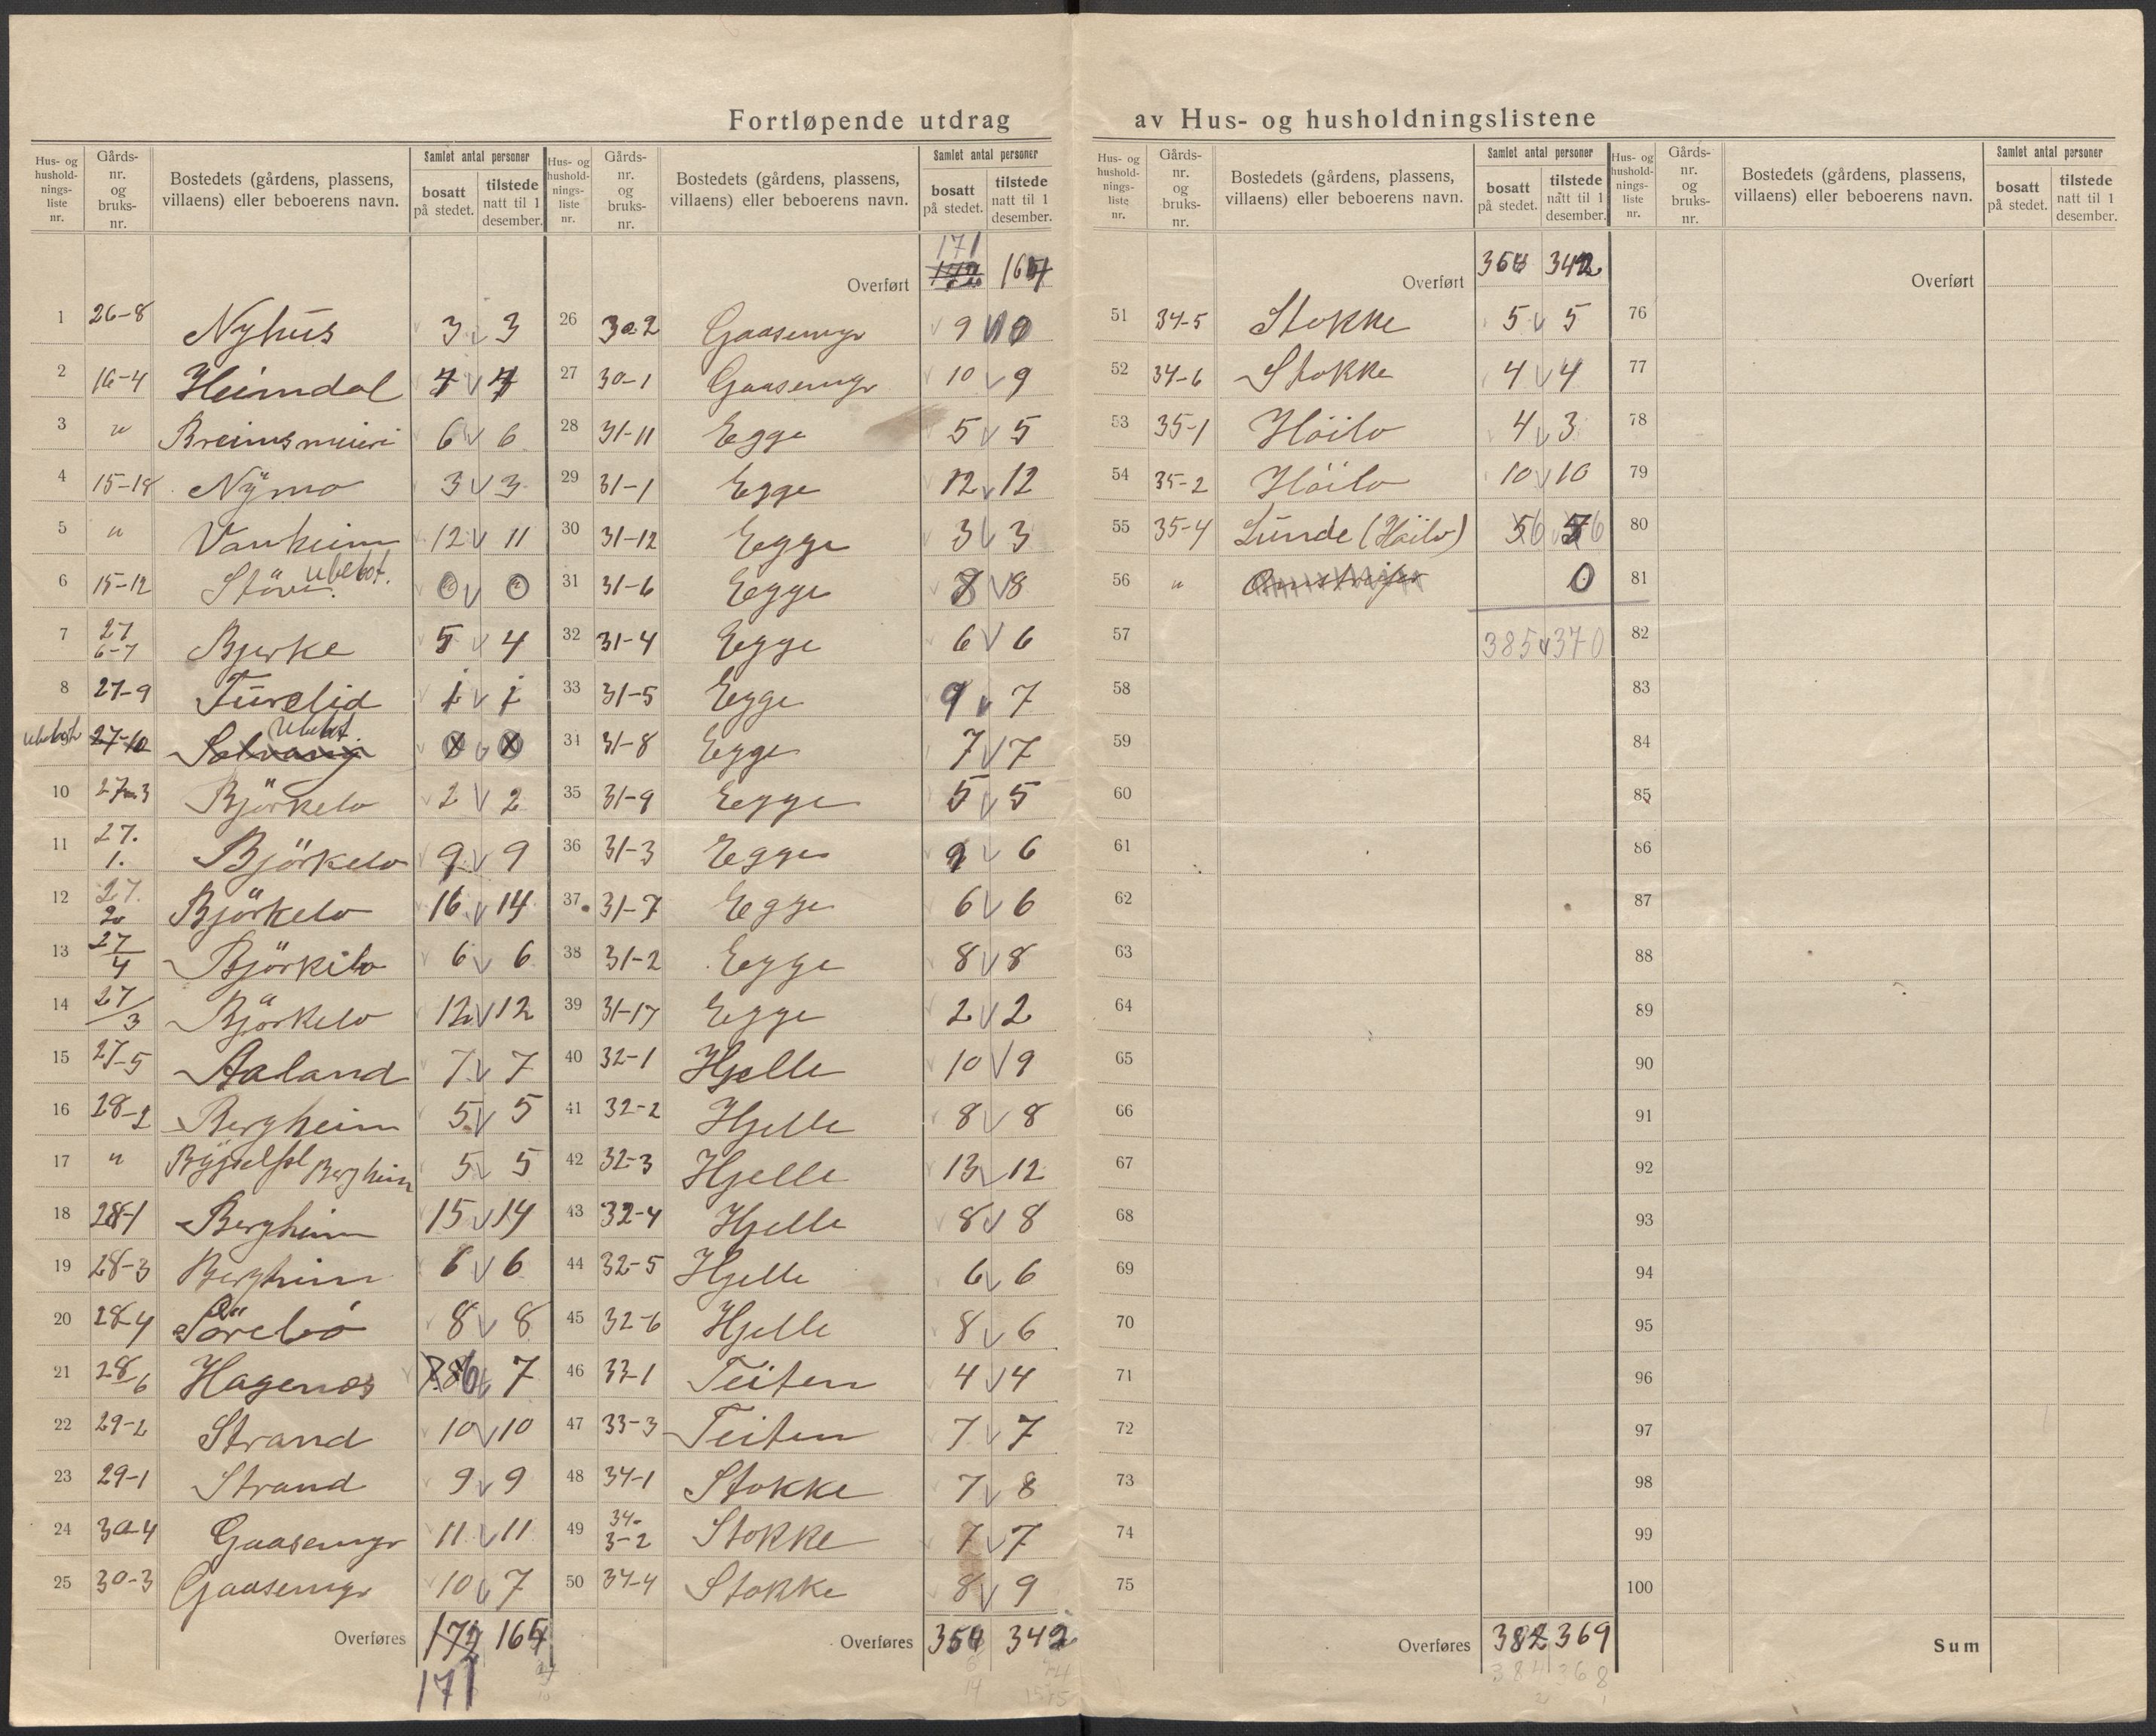 Fortløpende utdrag av Hus- og husholdningslistene
Hus- og husholdnings-liste nr. Gårds-nr. og bruks-nr. Bostedets (gårdens, plassens, villaens) eller beboerens navn. Samlet antal personer bosatt på stedet. tilstede natt til 1 desember.
1 26-8 Nyhus 3 3
2 16-4 Heimdal 7 7
3 " Breimsmeieri 6 6
4 15-18 Nymo 3 3
5 " Vanheim 12 11
6 15-12 ubebot. 0 0
7 27 6-7 Bjerke 5 4
8 27-9 Turelid 1 1
ubebodt 27-10 Solvang Ubebot. 0 0
10 27-3 Björkelo 2 2
11 27. 1. Björkelo 9 9
12 27. 2 Björkelo 16 14
13 27/4 Björkelo 6 6
14 27/3 Björkelo 12 12
15 27-5 Aaland 7 7
16 28-2 Bergheim 5 5
17 " Bergheim 5 5
18 28-1 Bergheim 15 14
19 28-3 Bergheim 6 6
20 28-4 Sörebö 8 8
21 28-6 Hagenes 6 7
22 29-2 Strand 10 10
23 29-1 Strand 9 9
24 30-4 Gaasemyr 11 11
25 30-3 Gaasemyr 10 7
Overføres 172 164
171
Hus- og husholdnings-liste nr. Gårds-nr. og bruks-nr. Bostedets (gårdens, plassens, villaens) eller beboerens navn. Samlet antal personer bosatt på stedet. tilstede natt til 1 desember.
171
Overført 172 164
26 30-2 Gaasemyr 9
27 30-1 Gaasemyr 10 9
28 31-11 Egge 5 5
29 31-1 Egge 12 12
30 31-12 Egge 3 3
31 31-6 Egge 8 8
32 31-4 Egge 6 6
33 31-5 Egge 9 7
34 31-8 Egge 7 7
35 31-9 Egge 5 5
36 31-3 Egge 9 6
37 31-7 Egge 6 6
38 31-2 Egge 8 8
39 31-17 Egge 2 2
40 32-1 Hjelle 10 9
41 32-2 Hjelle 8 8
42 32-3 Hjelle 13 12
43 32-4 Hjelle 8 8
44 32-5 Hjelle 6 6
45 32-6 Hjelle 8 6
46 33-1 Teiten 4 4
47 33-3 Teiten 7 7
48 34-1 Stokke 7 8
49 34- 3-2 Stokke 7 7
50 34-4 Stokke 8 9
Overføres 342
Hus- og husholdnings-liste nr. Gårds-nr. og bruks-nr. Bostedets (gårdens, plassens, villaens) eller beboerens navn. Samlet antal personer bosatt på stedet. tilstede natt til 1 desember.
Overført 342
51 34-5 Stokke 5 5
52 34-6 Stokke 4 4
53 35-1 Höilo 4 3
54 35-2 Höilo 10 10
55 35-4 Lunde (Höilo) 5 6 5 6
56 " 0
57 385 370
58
59
60
61
62
63
64
65
66
67
68
69
70
71
72
73
74
75
Overføres 382 369
384 368
Hus- og husholdnings-liste nr. Gårds-nr. og bruks-nr. Bostedets (gårdens, plassens, villaens) eller beboerens navn. Samlet antal personer bosatt på stedet. tilstede natt til 1 desember.
Overført
76
77
78
79
80
81
82
83
84
85
86
87
88
89
90
91
92
93
94
95
96
97
98
99
100
Sum